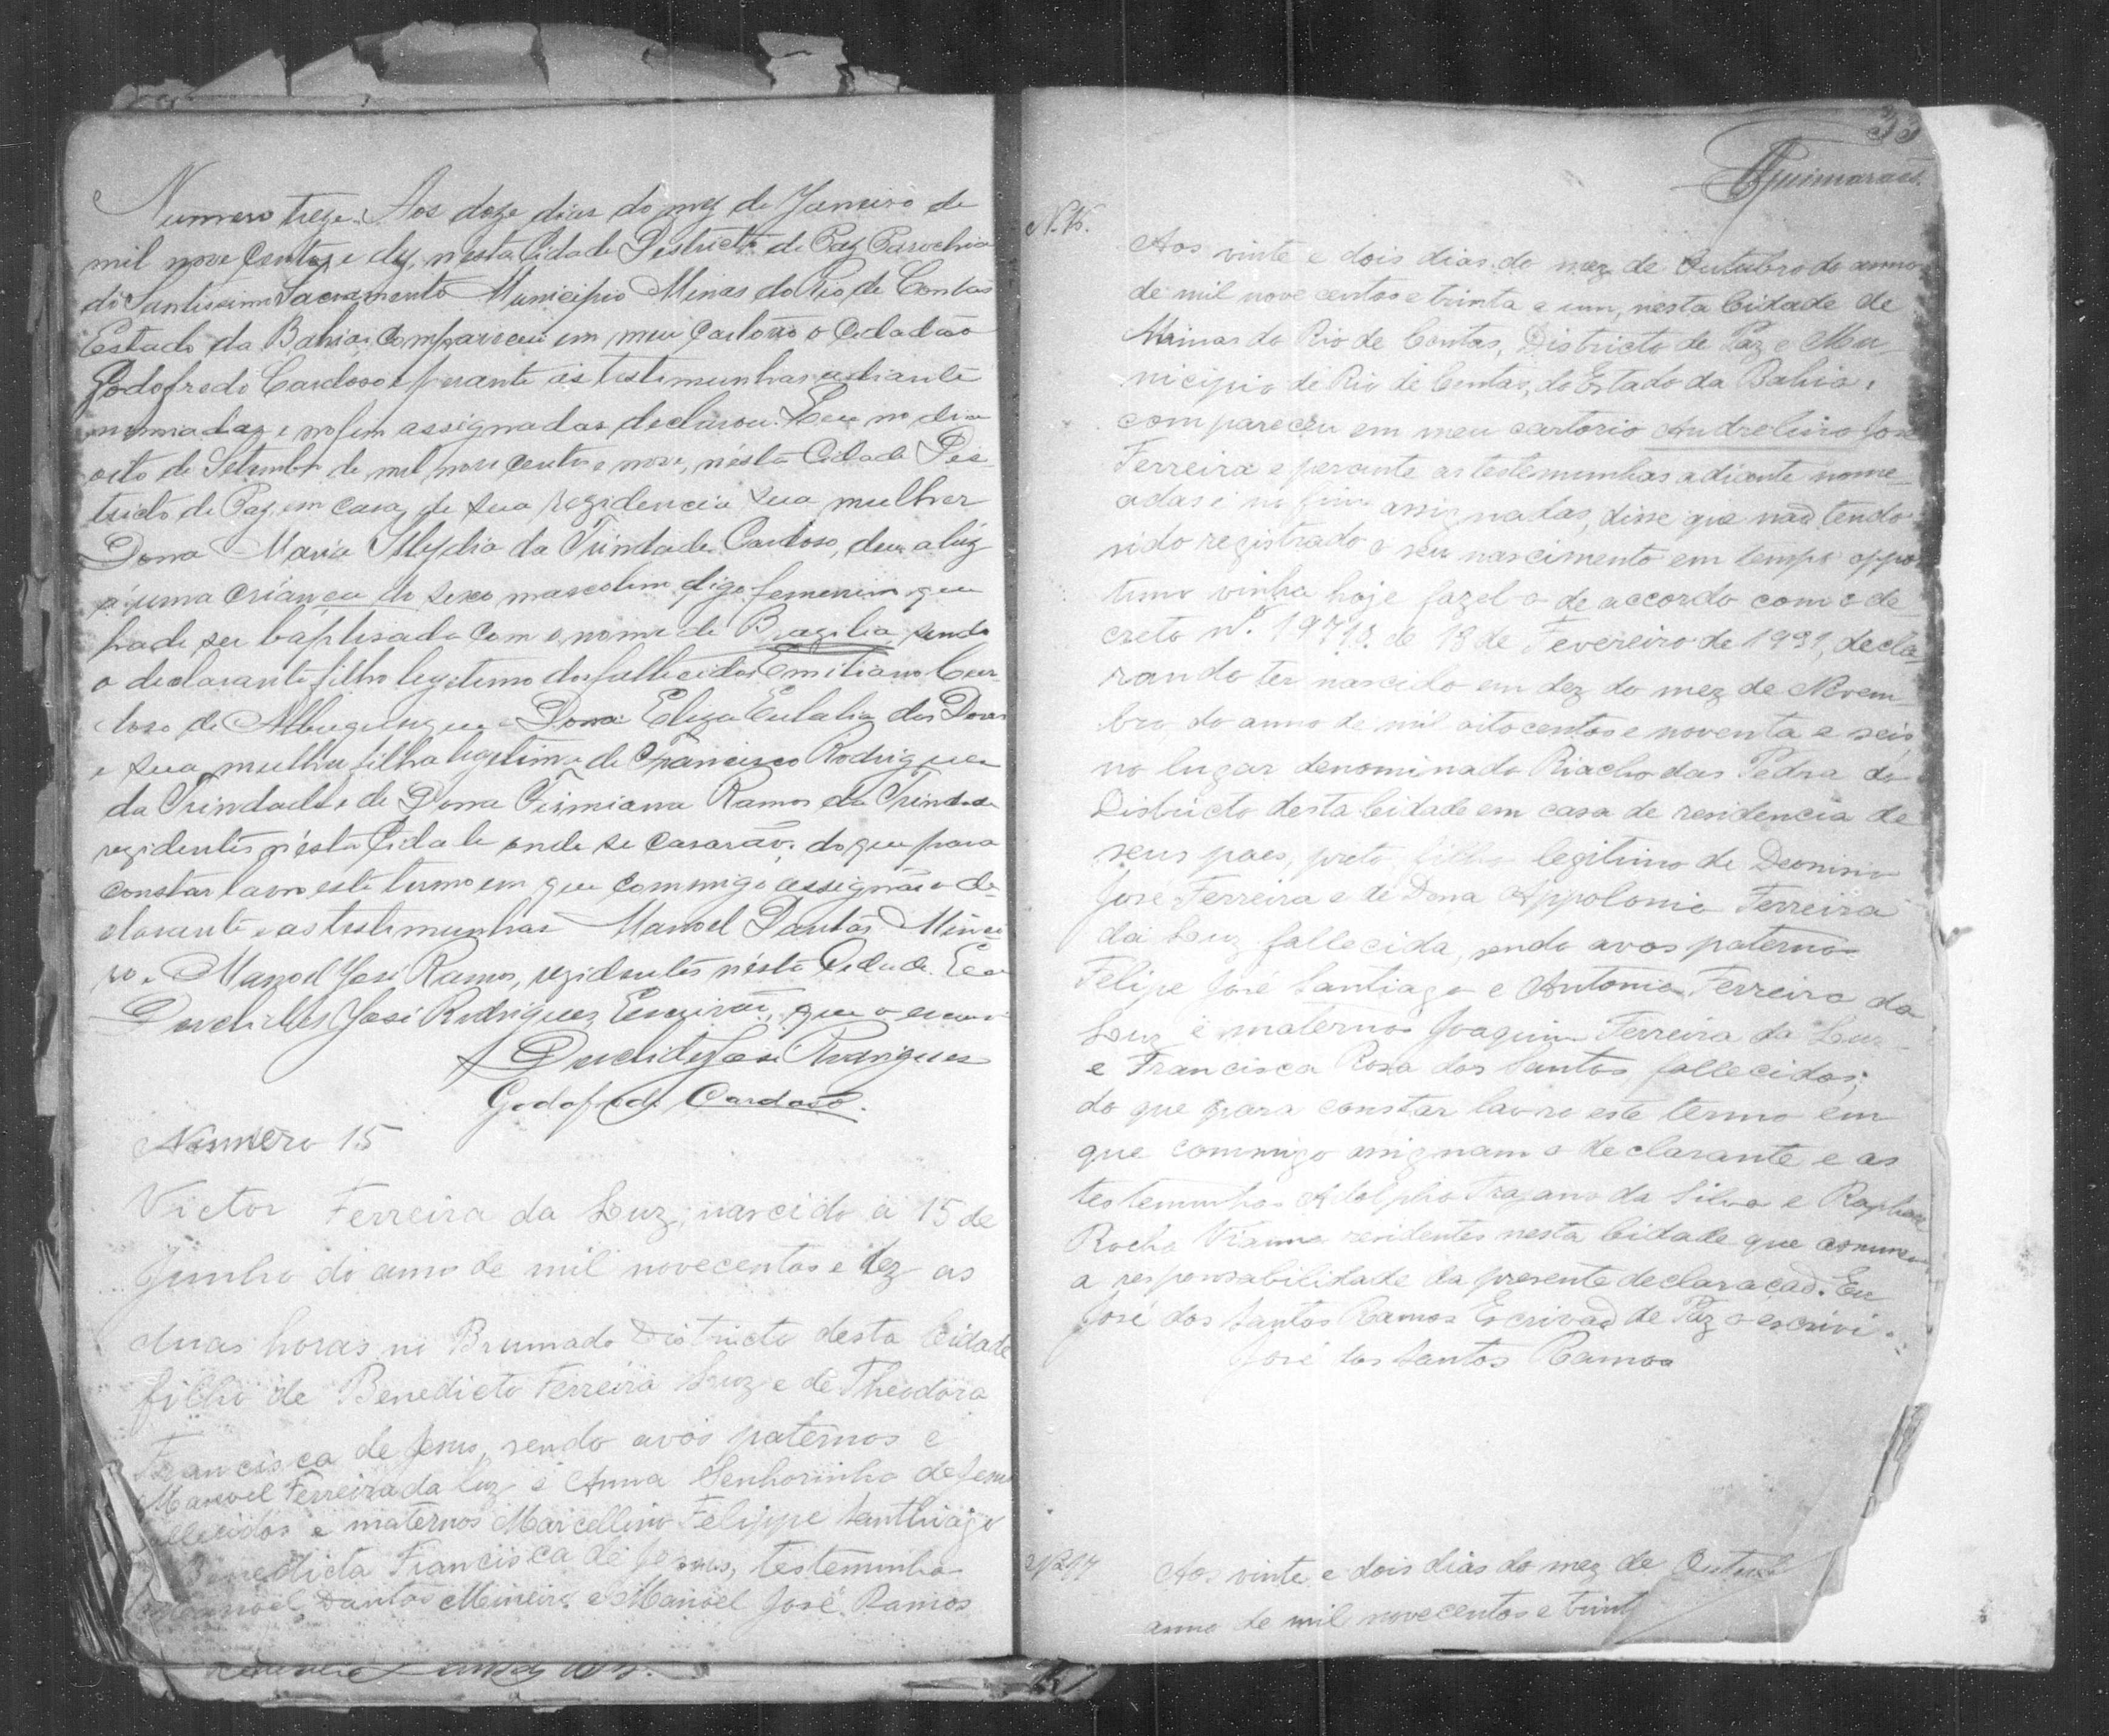 Numero treze. Aos doze dias do mez de Janeiro de
mil nove centos e dez, nesta Cidade Destricto de Paz Parochia
do Santissimo Sacramento Municipio Minas do Rio de Contas
Estado da Bahia compareceu em meu Cartorio o Cidadão
Godofredo Cardoso e perante as testimunhas adiante
nomiadas e no fim assignadas declarou: Que no dia
oito de Setembro de mil nove centos e nove, nésta Cidade Des-
tricto de Paz, em casa de sua rezidencia sua mulher
Dona Maria da Trindade Cardoso, deu a luz
a uma criança do sexo masculino digo femenino que
hade ser baptisada com o nome de Brazilia sendo
o declarante filho legitimo dos fallecidos Emiliano Car-
doso de Albuquerque e Dona Eliza Eulalia das Dores
e sua mulher filha legitima de Francisco Rodrigues
da Trindade e de Dona Firmiana Ramos da Trindade
rezidentes nésta Cidade onde se casarão, do que para
constar lavro este termo em que commigo assignão o de-
clarante e as testimunhas Manoel Dantas Minei-
ro e Manoel José Ramos, rezidentes nésta Cidade. Eu
José Rodrigues Escrivão, que o escrevi
José Rodrigues
Godofredo Cardoso.
Numero 15
Victor Ferreira da Luz, nascido a 15 de
Junho do anno de mil novecentos e dez as
duas horas no Brumado Districto desta Cidade
filho de Benedicto Ferreira Luz e de Theodora
Francisca de Jesus, sendo avós paternos e
Manoel Ferreira da Luz e Anna Senhorinha de Jesus
fallecidos e maternos Marcellino Felippe Santhiago
Benedicta Francisca de Jesus, testemunha
Manoel Dantas Mineiro e Manoel José Ramos
33
Guimarães.
N. 16.
Aos vinte e dois dias do mez de Outubro do anno
de mil nove centos e trinta e um, nesta Cidade de
Minas do Rio de Contas, Districto de Paz e Mu-
nicipio de Rio de Contas, do Estado da Bahia,
compareceu em meu cartorio Andrelino José
Ferreira e perante as testemunhas adiante nome-
adas e no fim assignadas, disse que não tendo
sido registrado o seu nascimento em tempo oppor
tuno vinha hoje fazel-o de accordo com o de-
creto nº. 19710 de 18 de Fevereiro de 1931, decla-
rando ter nascido em dez do mez de Novem-
bro do anno de mil oitocentos e noventa e seis
no lugar denominado Riacho das Pedra do
Districto desta Cidade em casa de residencia de
seus paes, preto filho legitimo de Deonisio
José Ferreira e de Dona Appolonia Ferreira
da Luz fallecida, sendo avos paternos
Felipe José Santiago e Antonia Ferreira da
Luz e maternos Joaquim Ferreira da Luz
e Francisca Rosa dos Santos fallecidos;
do que para constar lavro este termo em
que commigo assignam o declarante e as
testemunhas Adolpho Trajano da Silva e Raphael
Rocha Vianna residentes nesta Cidade que assumem
a responsabilidade da presente declaração. Eu
José dos Santos Ramos Escrivão de Paz o escrivi.
José dos Santos Ramos
Aos vinte e dois dias do mez de Outub
anno de mil novecentos e trint